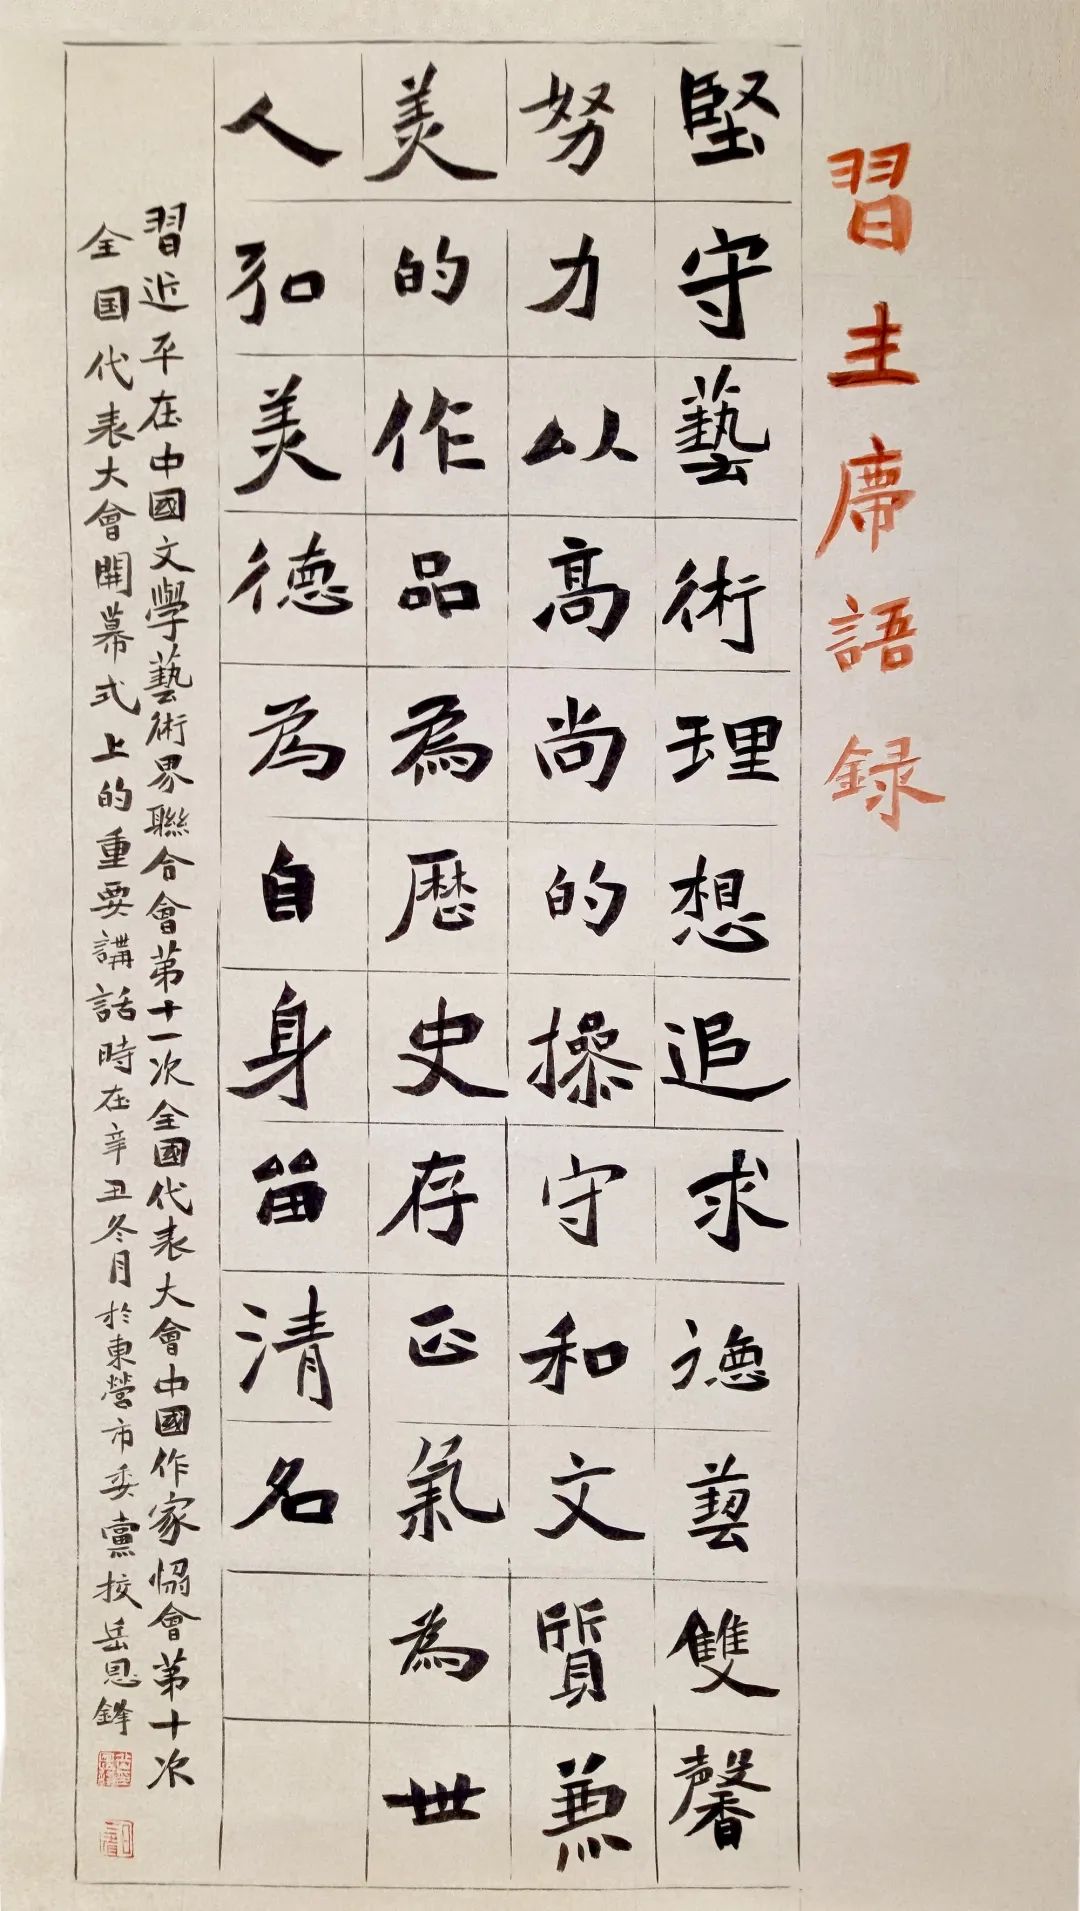 習主席語録
堅守藝術理想追求德藝雙馨
努力以高尚的操守和文質兼
美的作品為歷史存正氣為世
人弘美德為自身留清名
習近平在中國文學藝術界聯合會第十一次全國代表大會中國作家協會第十次
全国代表大會開幕式上的重要講話時在辛丑冬月於東營市委黨校岳恩鋒